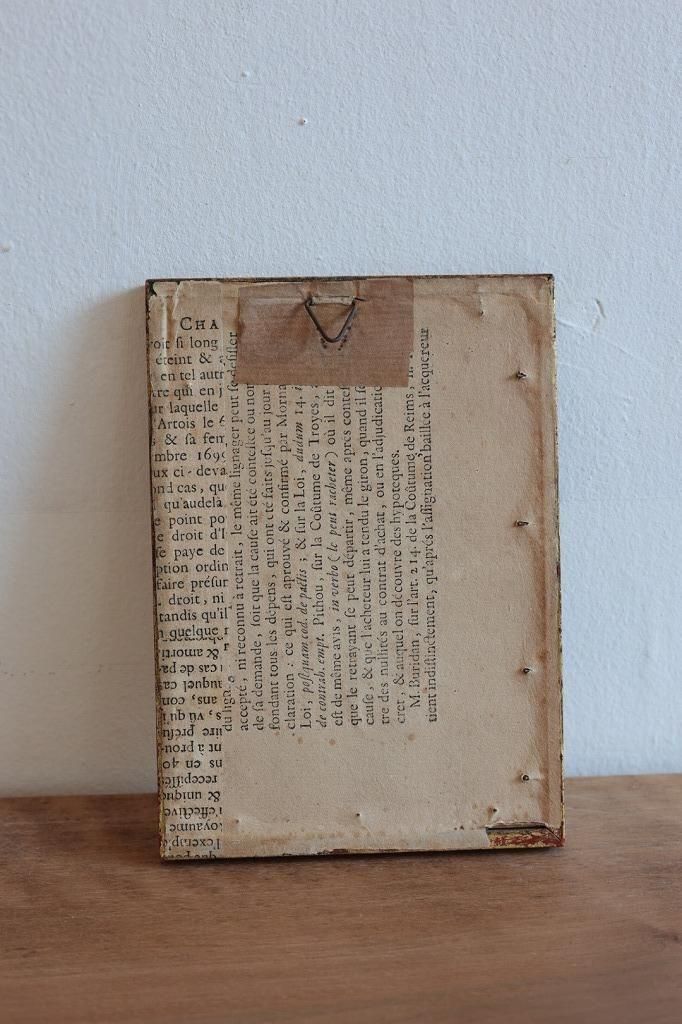 CHA
oit si long
éteint &
en tel autr
re qui en j
ur laquelle
'Artois le 6
& sa fem
mbre 1690
ux ci-deva
ond cas, qu
qu'audela
e point po
e droit d'I
se paye de
ption ordin
faire présur
droit, ni
tandis qu'il
n quelque
& amorti
cas de pa
auquel ca
ans, cond
s, vû qu'i
aire présu
nt à prou
ns en 40
recepisses
& unique
l'effective
oyaume
l'exemp
que pou
du lign
accepté, ni reconnu à retrait, le même lignager peut se désister
de sa demande, soit que la cause ait été contestée ou non
fondant tous les dépens, qui ont été faits jusqu'au jour
claration : ce qui est aprouvé & confirmé par Morna
Loi, postquam cod. de pactis ; & sur la Loi, dudum 14.
de contrah. empt. Pithou, sur la Coûtume de Troyes,
est de même avis, in verbo ( le peut racheter ) où il dit
que le retrayant se peut départir, même après contes
cause, & que l'acheteur lui a tendu le giron, quand il se
tre des nullités au contrat d'achat, ou en l'adjudicatio
cret, & auquel on découvre des hypoteques.
M. Buridan, sur l'art. 214. de la Coûtume de Reims,
tient indistinctement, qu'après l'assignation baillée à l'acquereur